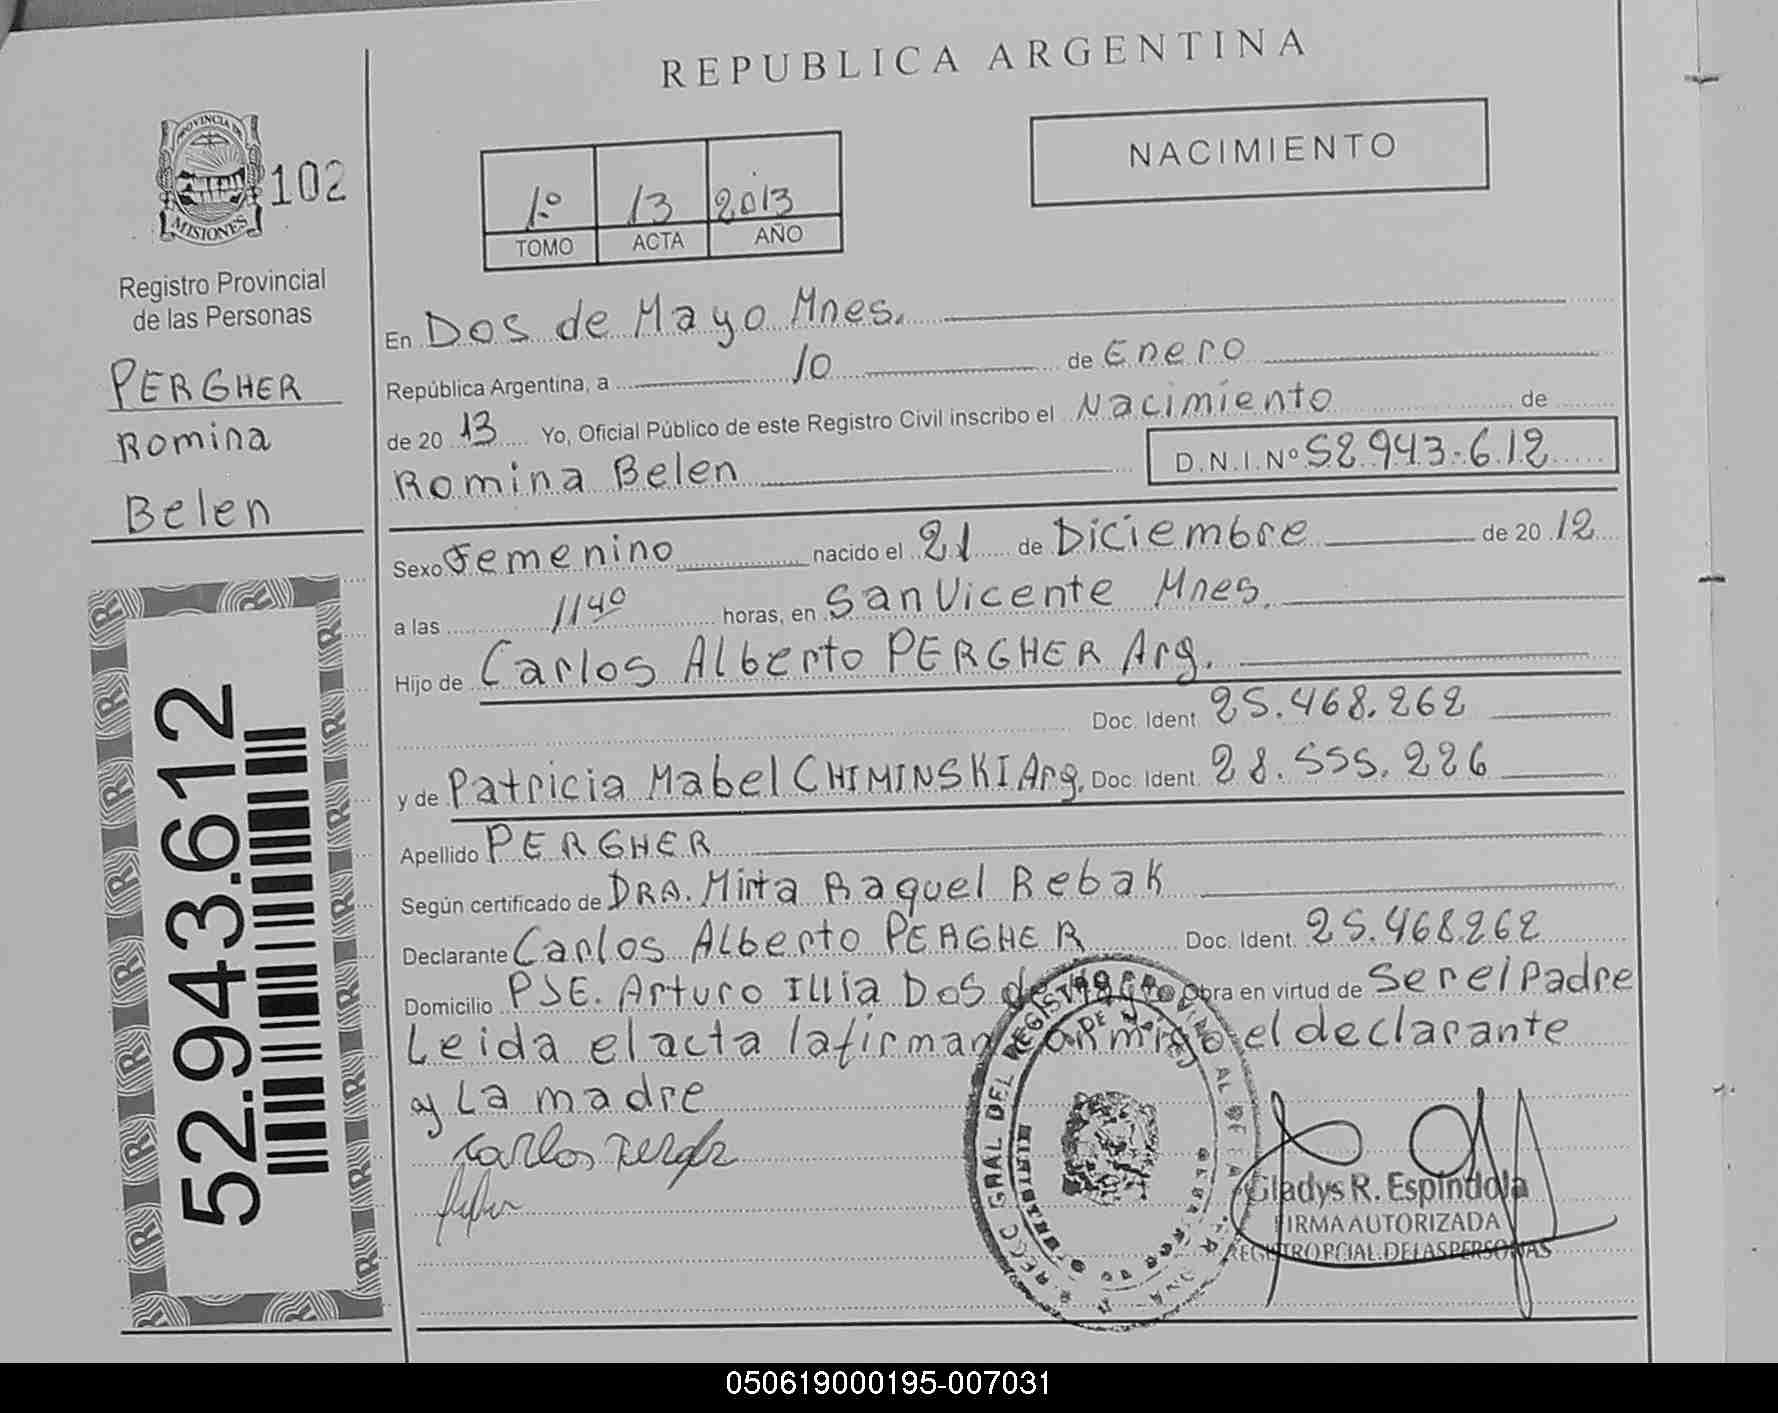 REPUBLICA ARGENTINA
PROVINCIA DE
MISIONES
102
Registro Provincial
de las Personas
PERGHER
Romina
Belen
52.943.612
1º 13 2013
TOMO ACTA AÑO
NACIMIENTO
En Dos de Mayo Mnes.
República Argentina, a 10 de Enero
de 20 13 Yo, Oficial Público de este Registro Civil inscribo el Nacimiento de
Romina Belen D.N.I.Nº 52.943.612
Sexo Femenino nacido el 21 de Diciembre de 20 12
a las 11 40 horas, en San Vicente Mnes.
Hijo de Carlos Alberto PERGHER Arg.
Doc. Ident. 25.468.262
y de Patricia Mabel CHIMINSKI Arg. Doc. Ident. 28.555.226
Apellido PERGHER
Según certificado de DRA. Mirta Raquel Rebak
Declarante Carlos Alberto PERGHER Doc. Ident. 25.468262
Domicilio PSE. Arturo Illia Dos de Mayo Obra en virtud de Ser el Padre
Leida el acta la firman conmigo el declarante
y La madre
Carlos
Gladys R. Espindola
FIRMA AUTORIZADA
REGISTRO PCIAL. DE LAS PERSONAS
050619000195-007031